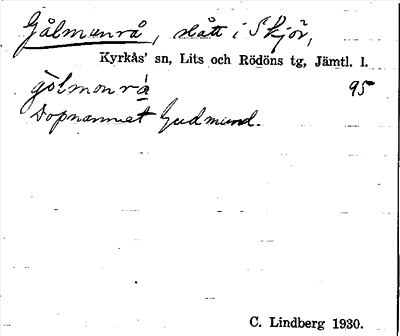 Gålmunrå, slått i Skjör,
Kyrkås' sn, Lits och Rödöns tg, Jämtl. l.
gölmonrå 95
Dopnamnet Gudmund.
C. Lindberg 1930.